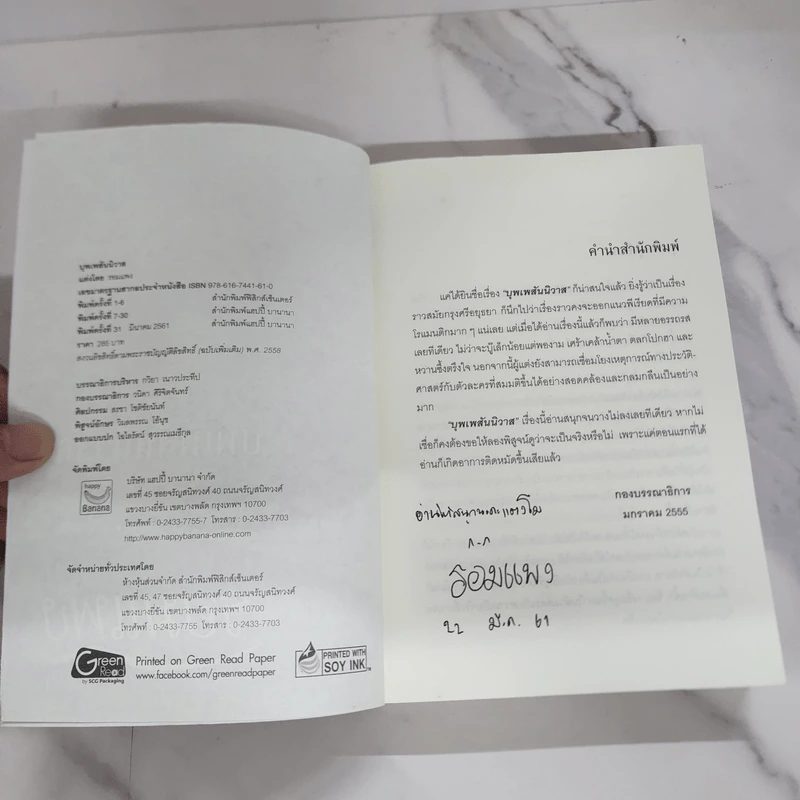 บุพเพสันนิวาส
แต่งโดย รอมแพง
เลขมาตรฐานสากลประจำหนังสือ ISBN 978-616-7441-61-0
พิมพ์ครั้งที่ 1-6 สำนักพิมพ์ฟิสิกส์เซ็นเตอร์
พิมพ์ครั้งที่ 7-30 สำนักพิมพ์แฮปปี้ บานานา
พิมพ์ครั้งที่ 31 มีนาคม 2561 สำนักพิมพ์แฮปปี้ บานานา
ราคา 285 บาท
สงวนลิขสิทธิ์ตามพระราชบัญญัติลิขสิทธิ์ (ฉบับเพิ่มเติม) พ.ศ. 2558
บรรณาธิการบริหาร กวิยา เนาวประทีป
กองบรรณาธิการ วนิดา ศิริจิตจันทร์
ศิลปกรรม ธงชา โชติชัยนันท์
พิสูจน์อักษร วิมลพรรณ ใช้นุช
ออกแบบปก ไอไลรัตน์ สุวรรณเมธีกุล
จัดพิมพ์โดย
happy
Banana
บริษัท แฮปปี้ บานานา จำกัด
เลขที่ 45 ซอยจรัญสนิทวงศ์ 40 ถนนจรัญสนิทวงศ์
แขวงบางยี่ขัน เขตบางพลัด กรุงเทพฯ 10700
โทรศัพท์ : 0-2433-7755-7 โทรสาร : 0-2433-7703
http://www.happybanana-online.com
จัดจำหน่ายทั่วประเทศโดย
ห้างหุ้นส่วนจำกัด สำนักพิมพ์ฟิสิกส์เซ็นเตอร์
เลขที่ 45, 47 ซอยจรัญสนิทวงศ์ 40 ถนนจรัญสนิทวงศ์
แขวงบางยี่ขัน เขตบางพลัด กรุงเทพฯ 10700
โทรศัพท์ : 0-2433-7755 โทรสาร : 0-2433-7703
Green
Read
by SCG Packaging
Printed on Green Read Paper
www.facebook.com/greenreadpaper
PRINTED WITH
SOY INK
คำนำสำนักพิมพ์
แค่ได้ยินชื่อเรื่อง "บุพเพสันนิวาส" ก็น่าสนใจแล้ว ยิ่งรู้ว่าเป็นเรื่อง
ราวสมัยกรุงศรีอยุธยา ก็นึกไปว่าเรื่องราวคงจะออกแนวพีเรียดที่มีความ
โรแมนติกมาก ๆ แน่เลย แต่เมื่อได้อ่านเรื่องนี้แล้วก็พบว่า มีหลายอรรถรส
เลยทีเดียว ไม่ว่าจะบู๊เล็กน้อยแต่พองาม เศร้าเคล้าน้ำตา ตลกโปกฮา และ
หวานซึ้งตรึงใจ นอกจากนี้ผู้แต่งยังสามารถเชื่อมโยงเหตุการณ์ทางประวัติ-
ศาสตร์กับตัวละครที่สมมติขึ้นได้อย่างสอดคล้องและกลมกลืนเป็นอย่าง
มาก
"บุพเพสันนิวาส" เรื่องนี้อ่านสนุกจนวางไม่ลงเลยทีเดียว หากไม่
เชื่อก็คงต้องขอให้ลองพิสูจน์ดูว่าจะเป็นจริงหรือไม่ เพราะแค่ตอนแรกที่ได้
อ่านก็เกิดอาการติดหมัดขึ้นเสียแล้ว
กองบรรณาธิการ
มกราคม 2555
อ่านให้สนุกนะคะ แตงโม
ก-ก
รอมแพง
22 มี.ค. 61